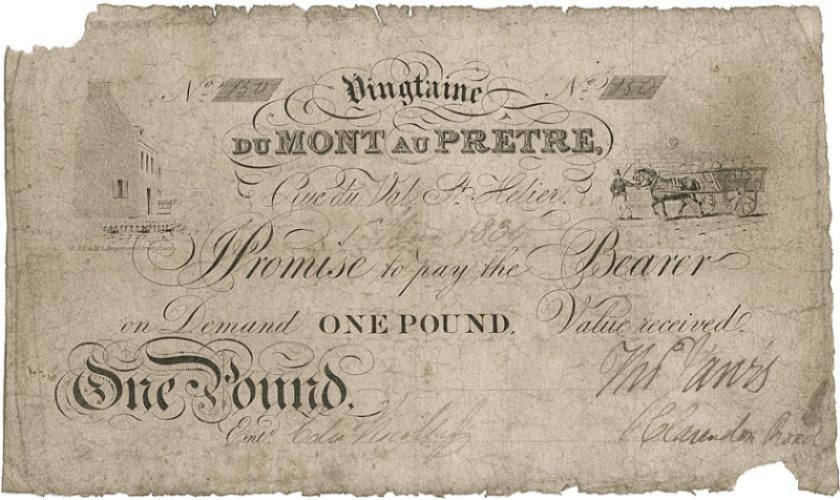 No. 150 Vingtaine No. 150
DU MONT AU PRETRE,
Rue du Val St. Helier.
I Promise to pay the Bearer
on Demand ONE POUND, Value received.
One Pound.
Thos
Entd. Clarendon Road